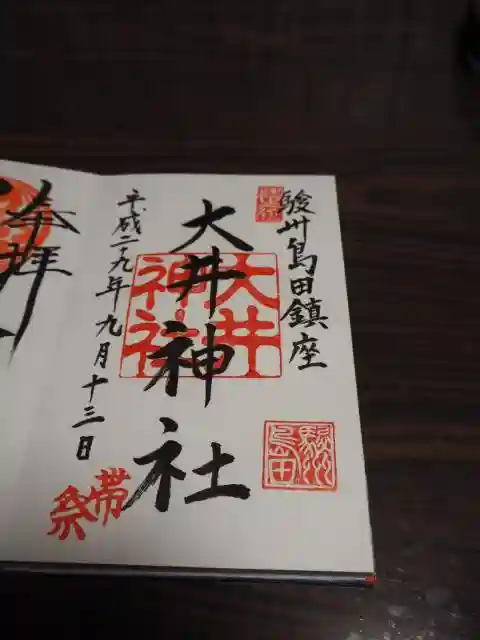 駿州島田鎮座
大井神社
大井神社
平成二十九年九月十三日
帯祭
駿州島田
奉拝